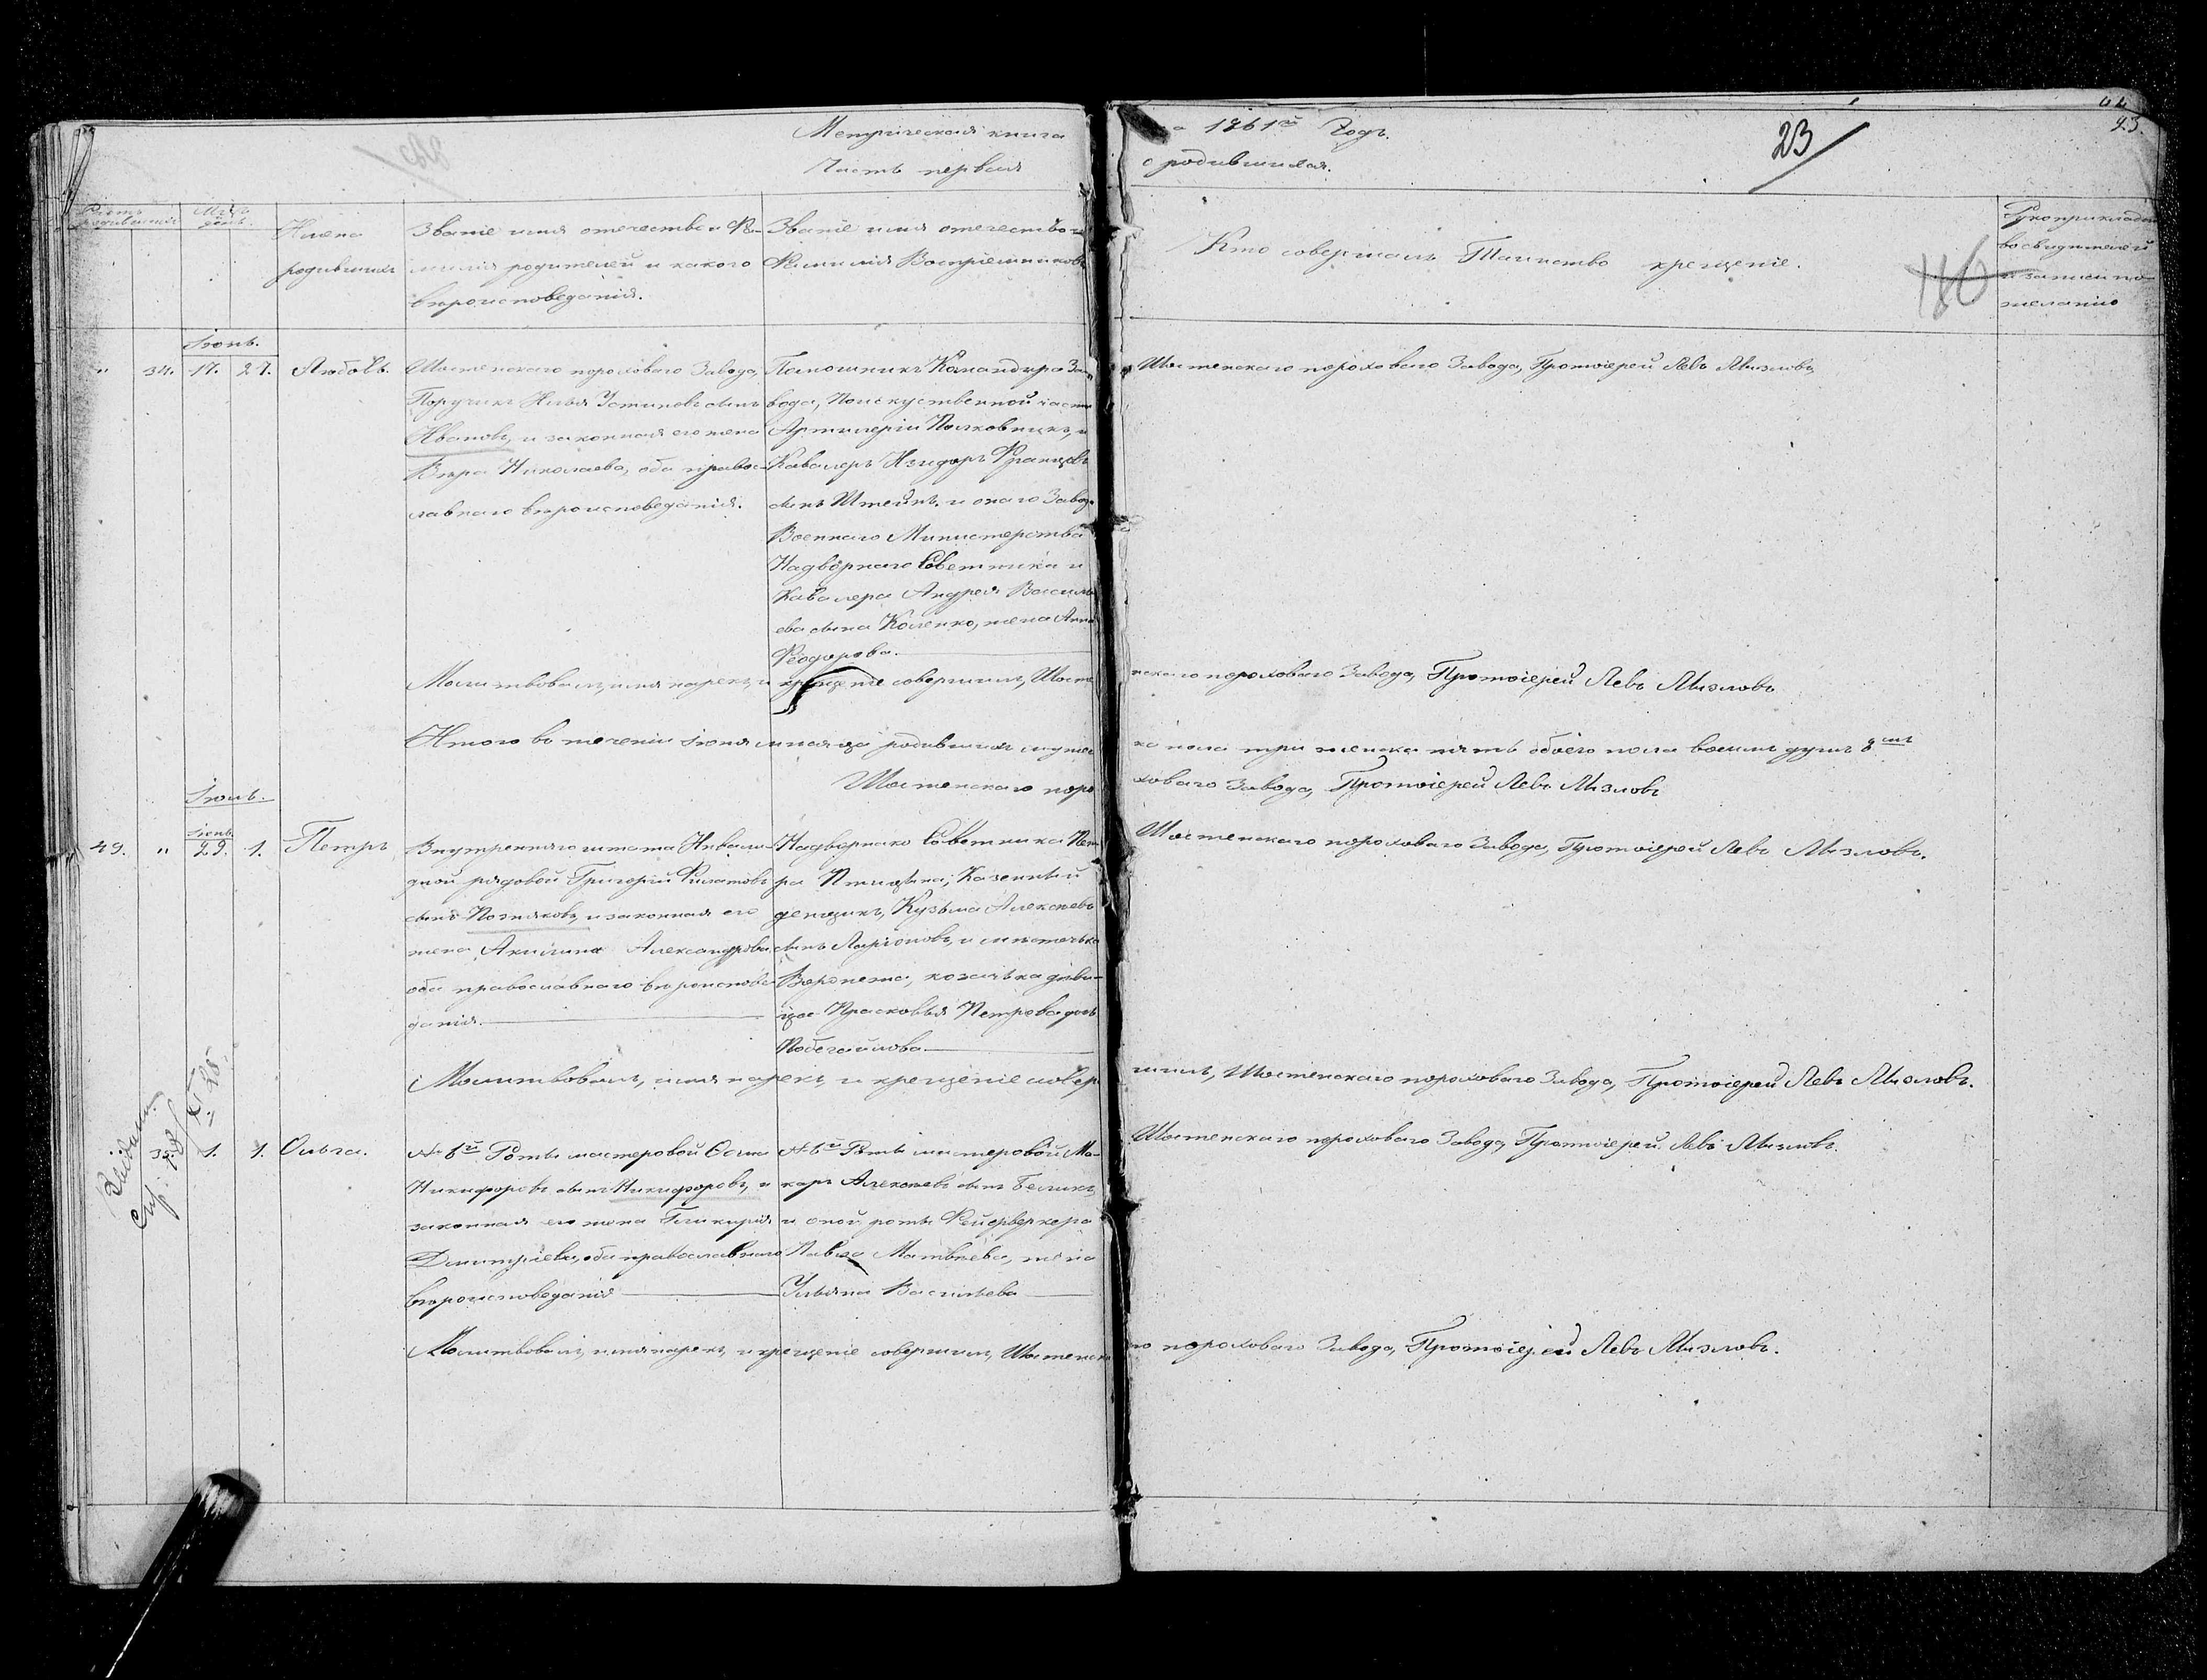 Метрическая книга
Часть первая
а 1861й Годъ.
о родившихся.
23
180
Имена
родившихся
Званіе имя отечество и Фа-
милія родителей и какого
вѣроисповеданія.
Званіе имя отечество и
Фамилія Воспріемниковъ
Кто совершалъ Таинство крещеніе.
Рукоприкладс
во свидетелей
и записи по
желанію
Іюнь.
" 34. 17. 27. Любовь.
Шостенскаго пороховаго Завода,
Поручикъ Илья Устиновъ сынъ
Ивановъ, и законная его жена
Вѣра Николаева, оба правос-
лавнаго вѣроисповеданія.
Помошникъ Командира За-
вода, По искуственной части
Артилеріи Полковникъ, и
Кавалеръ Изидоръ Францовъ
сынъ Штейнъ, и онаго Завод
Военнаго Министерства
Надворнаго Советника и
Кавалера Андрея Василь
ева сына Коленко, жена Анна
Феодорова.
Шостенскаго пороховаго Завода, Протоіерей Левъ Мизловъ
Молитвовалъ, имя нарекъ, и крещеніе совершилъ, Шосте
нскаго пороховаго Завода, Протоіерей Левъ Мизловъ
Итого въ теченіи Іюня мѣсяца родившихся мужес
ка пола три женска пять обоего пола восемь душъ 8мъ
Шостенскаго поро
ховаго Завода, Протоіерей Левъ Мизловъ
Іюль.
Іюнь.
49. " 29. 1. Петръ
Внутренняго штата Инвали-
дной рядовой Григорій Филатовъ
сынъ Позняковъ, и законная его
жена Акилина Александрова
оба православнаго вѣроиспове
данія.
Надворнаго Советника Пет
ра Птицына, Казенный
денщикъ, Кузьма Алексѣевъ
сынъ Ларіоновъ, и мѣстечька
Воронежа, козачька дѣви-
ца Прасковья Петрова дочь
Побегайлова
Шостенскаго пороховаго Завода, Протоіерей Левъ Мизловъ.
Молитвовалъ, имя нарекъ, и крещеніе совер
шилъ, Шостенскаго пороховаго Завода, Протоіерей Левъ Мизловъ.
35. 1. 1. Ольга.
№ 6й Роты мастеровой
Никифоровъ сынъ Никифоровъ, и
законная его жена Гликерія
Дмитріева, оба православнаго
вѣроисповеданія
№ 6й Роты мастеровой Ма-
каръ Алексѣевъ сынъ Беликъ,
и оной роты Фейерверкера
Павла Матвѣева, жена
Ульяна Васильева
Шостенскаго пороховаго Завода, Протоіерей Левъ Мизловъ.
Молитвовалъ, имя нарекъ, и крещеніе совершилъ, Шостенска
го пороховаго Завода, Протоіерей Левъ Мизловъ.